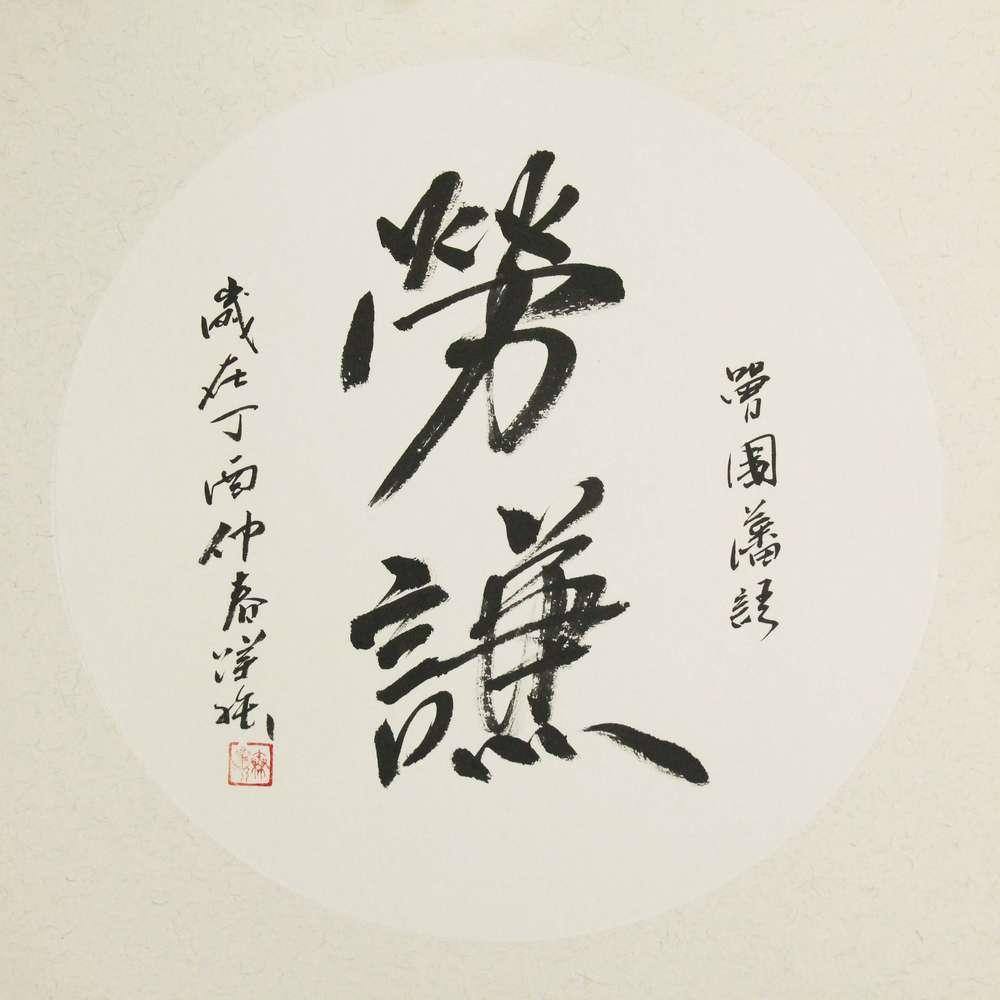 勞謙
曾國藩語
歲在丁酉仲春